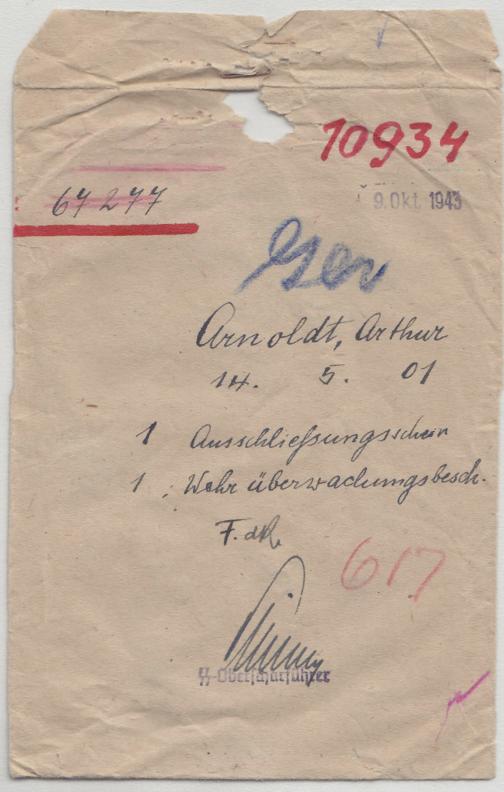 10934
67277
9. Okt 1943
Arnoldt, Arthur
14. 5. 01
1 Ausschließungsschein
1 Wehrüberwachungsbesch.
F.d.R.
617
SS-Oberscharführer